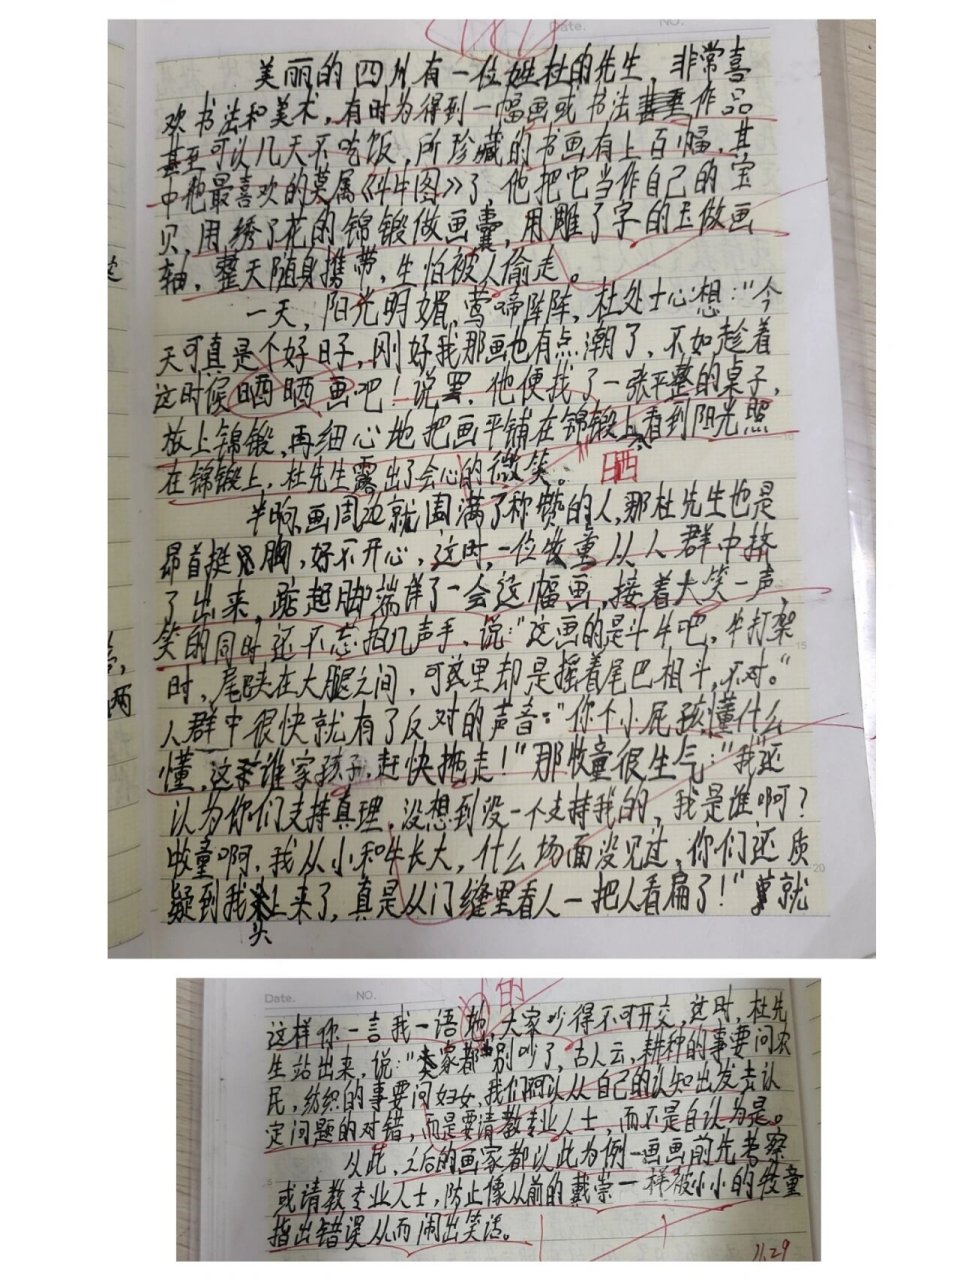 Date. NO.
美丽的四川有一位姓杜的先生，非常喜
欢书法和美术，有时为得到一幅画或书法作品
甚至可以几天不吃饭，所珍藏的书画有上百幅，其
中他最喜欢的莫属《斗牛图》了，他把它当作自己的宝
贝，用绣了花的锦锻做画囊，用雕了字的玉做画
轴，整天随身携带，生怕被人偷走。
一天，阳光明媚，莺啼阵阵，杜处士心想："今
天可真是个好日子，刚好我那画也有点潮了，不如趁着
这时候晒晒画吧！说罢，他便找了一张平整的桌子，
放上锦锻，再细心地把画平铺在锦锻上，看到阳光照
在锦锻上，杜先生露出了会心的微笑。
晒
半晌，画周边就围满了称赞的人，那杜先生也是
昂首挺胸，好不开心，这时，一位牧童从人群中挤
了出来，踮起脚端详了一会这幅画，接着大笑一声，
笑的同时还不忘拍几声手，说："这画的是斗牛吧，牛打架
时，尾巴夹在大腿之间，可这里却是摇着尾巴相斗，不对。"
人群中很快就有了反对的声音："你个小屁孩懂什么
懂，这谁家孩子，赶快抱走！"那牧童很生气："我还
认为你们支持真理，没想到没一个支持我的，我是谁啊？
牧童啊，我从小和牛长大，什么场面没见过，你们还质
疑到我头上来了，真是从门缝里看人一把人看扁了！"就
Date. NO.
的
这样你一言我一语地，大家吵得不可开交，这时，杜先
生站出来，说："大家都别吵了，古人云，耕种的事要问农
民，纺织的事要问妇女，我们啊以从自己的认知出发去认
定问题的对错，而是要请教专业人士，而不是自认为是。
从此，之后的画家都以此为例一画画前先考察
或请教专业人士，防止像从前的戴崇一样被小小的牧童
指出错误从而闹出笑话。
11.29